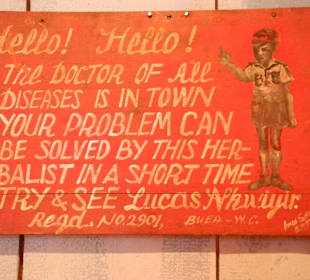 Hello! Hello!
The Doctor of All
DISEASES IS IN TOWN
YOUR PROBLEM CAN
BE SOLVED BY THIS HER-
BALIST IN A SHORT TIME
TRY & SEE LUCAS
Regd. No. 2901, BUEA - W.C.